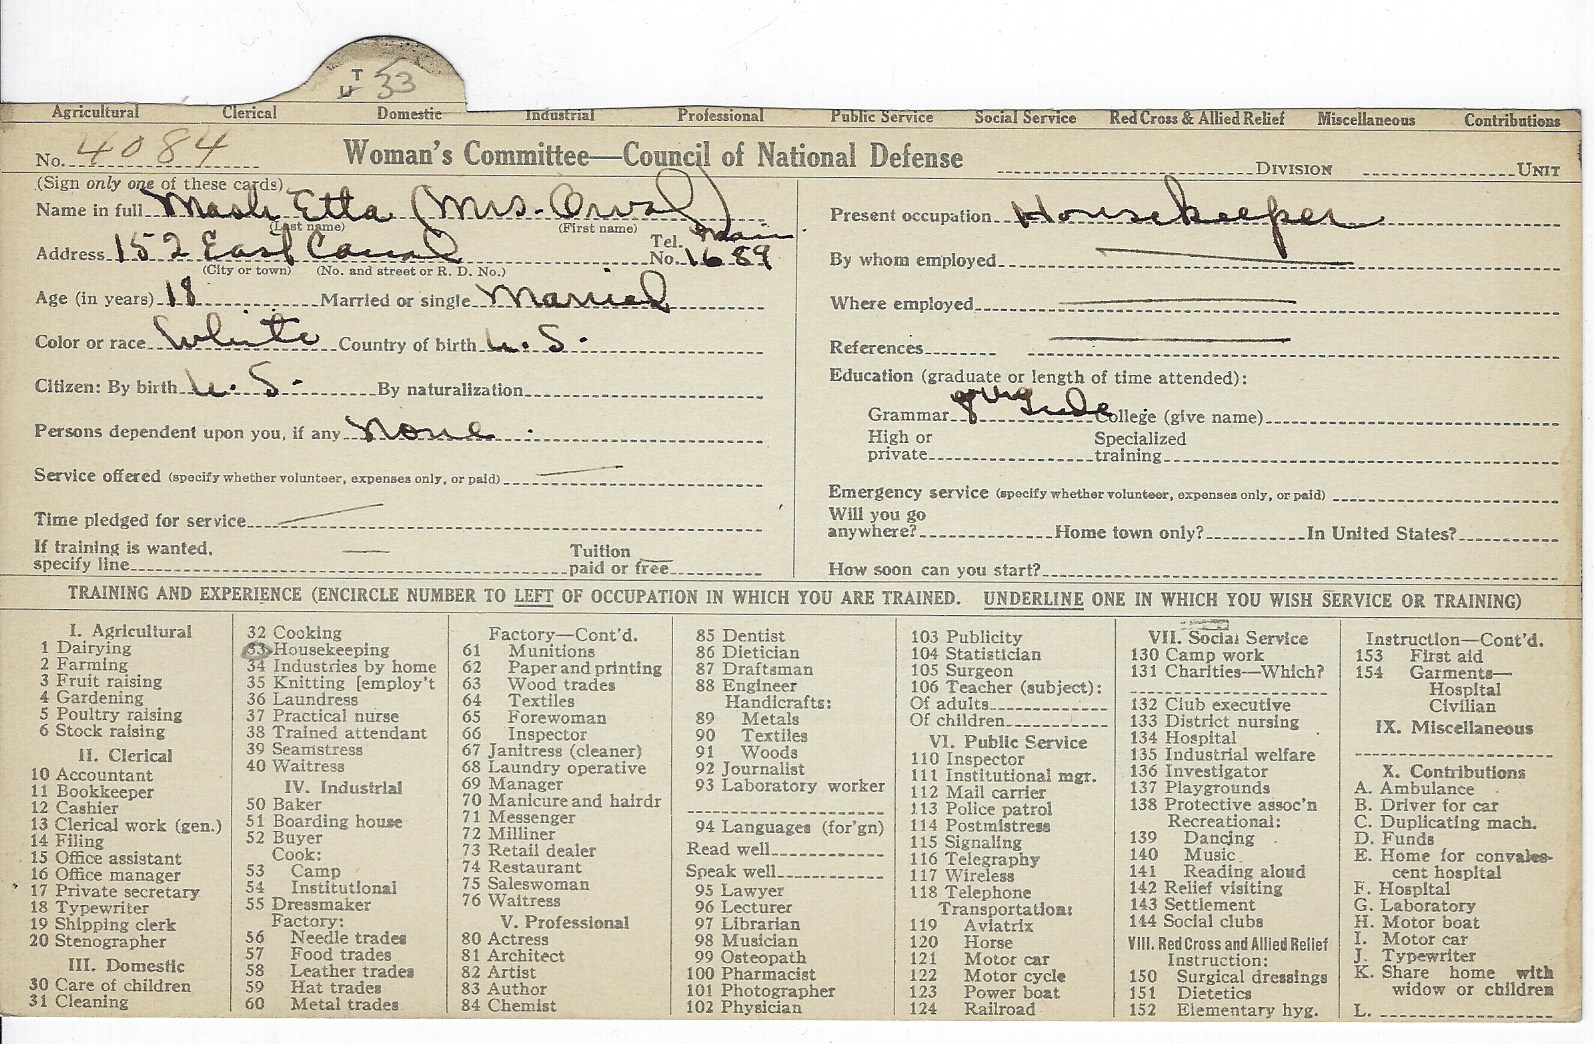 T
U 33
Agricultural Clerical Domestic Industrial Professional Public Service Social Service Red Cross & Allied Relief Miscellaneous Contributions
No. 4084 Woman's Committee—Council of National Defense DIVISION UNIT
(Sign only one of these cards)
Name in full Mash Etta (Mrs. Orval)
(Last name) (First name)
Address 152 East Canal Tel. No. Main 1689
(City or town) (No. and street or R. D. No.)
Age (in years) 18 Married or single Married
Color or race White Country of birth U. S.
Citizen: By birth U. S. By naturalization
Persons dependent upon you, if any None
Service offered (specify whether volunteer, expenses only, or paid)
Time pledged for service
If training is wanted, specify line Tuition paid or free
Present occupation Housekeeper
By whom employed
Where employed
References
Education (graduate or length of time attended):
Grammar Grade College (give name)
High or private Specialized training
Emergency service (specify whether volunteer, expenses only, or paid)
Will you go anywhere? Home town only? In United States?
How soon can you start?
TRAINING AND EXPERIENCE (ENCIRCLE NUMBER TO LEFT OF OCCUPATION IN WHICH YOU ARE TRAINED. UNDERLINE ONE IN WHICH YOU WISH SERVICE OR TRAINING)
I. Agricultural
1 Dairying
2 Farming
3 Fruit raising
4 Gardening
5 Poultry raising
6 Stock raising
II. Clerical
10 Accountant
11 Bookkeeper
12 Cashier
13 Clerical work (gen.)
14 Filing
15 Office assistant
16 Office manager
17 Private secretary
18 Typewriter
19 Shipping clerk
20 Stenographer
III. Domestic
30 Care of children
31 Cleaning
32 Cooking
33 Housekeeping
34 Industries by home
35 Knitting [employ't
36 Laundress
37 Practical nurse
38 Trained attendant
39 Seamstress
40 Waitress
IV. Industrial
50 Baker
51 Boarding house
52 Buyer
Cook:
53 Camp
54 Institutional
55 Dressmaker
Factory:
56 Needle trades
57 Food trades
58 Leather trades
59 Hat trades
60 Metal trades
Factory—Cont'd.
61 Munitions
62 Paper and printing
63 Wood trades
64 Textiles
65 Forewoman
66 Inspector
67 Janitress (cleaner)
68 Laundry operative
69 Manager
70 Manicure and hairdr
71 Messenger
72 Milliner
73 Retail dealer
74 Restaurant
75 Saleswoman
76 Waitress
V. Professional
80 Actress
81 Architect
82 Artist
83 Author
84 Chemist
85 Dentist
86 Dietician
87 Draftsman
88 Engineer
Handicrafts:
89 Metals
90 Textiles
91 Woods
92 Journalist
93 Laboratory worker
94 Languages (for'gn)
Read well
Speak well
95 Lawyer
96 Lecturer
97 Librarian
98 Musician
99 Osteopath
100 Pharmacist
101 Photographer
102 Physician
103 Publicity
104 Statistician
105 Surgeon
106 Teacher (subject):
Of adults
Of children
VI. Public Service
110 Inspector
111 Institutional mgr.
112 Mail carrier
113 Police patrol
114 Postmistress
115 Signaling
116 Telegraphy
117 Wireless
118 Telephone
Transportation:
119 Aviatrix
120 Horse
121 Motor car
122 Motor cycle
123 Power boat
124 Railroad
VII. Social Service
130 Camp work
131 Charities—Which?
132 Club executive
133 District nursing
134 Hospital
135 Industrial welfare
136 Investigator
137 Playgrounds
138 Protective assoc'n
Recreational:
139 Dancing
140 Music
141 Reading aloud
142 Relief visiting
143 Settlement
144 Social clubs
VIII. Red Cross and Allied Relief
Instruction:
150 Surgical dressings
151 Dietetics
152 Elementary hyg.
Instruction—Cont'd.
153 First aid
154 Garments—
Hospital
Civilian
IX. Miscellaneous
X. Contributions
A. Ambulance
B. Driver for car
C. Duplicating mach.
D. Funds
E. Home for convales-
cent hospital
F. Hospital
G. Laboratory
H. Motor boat
I. Motor car
J. Typewriter
K. Share home with
widow or children
L.